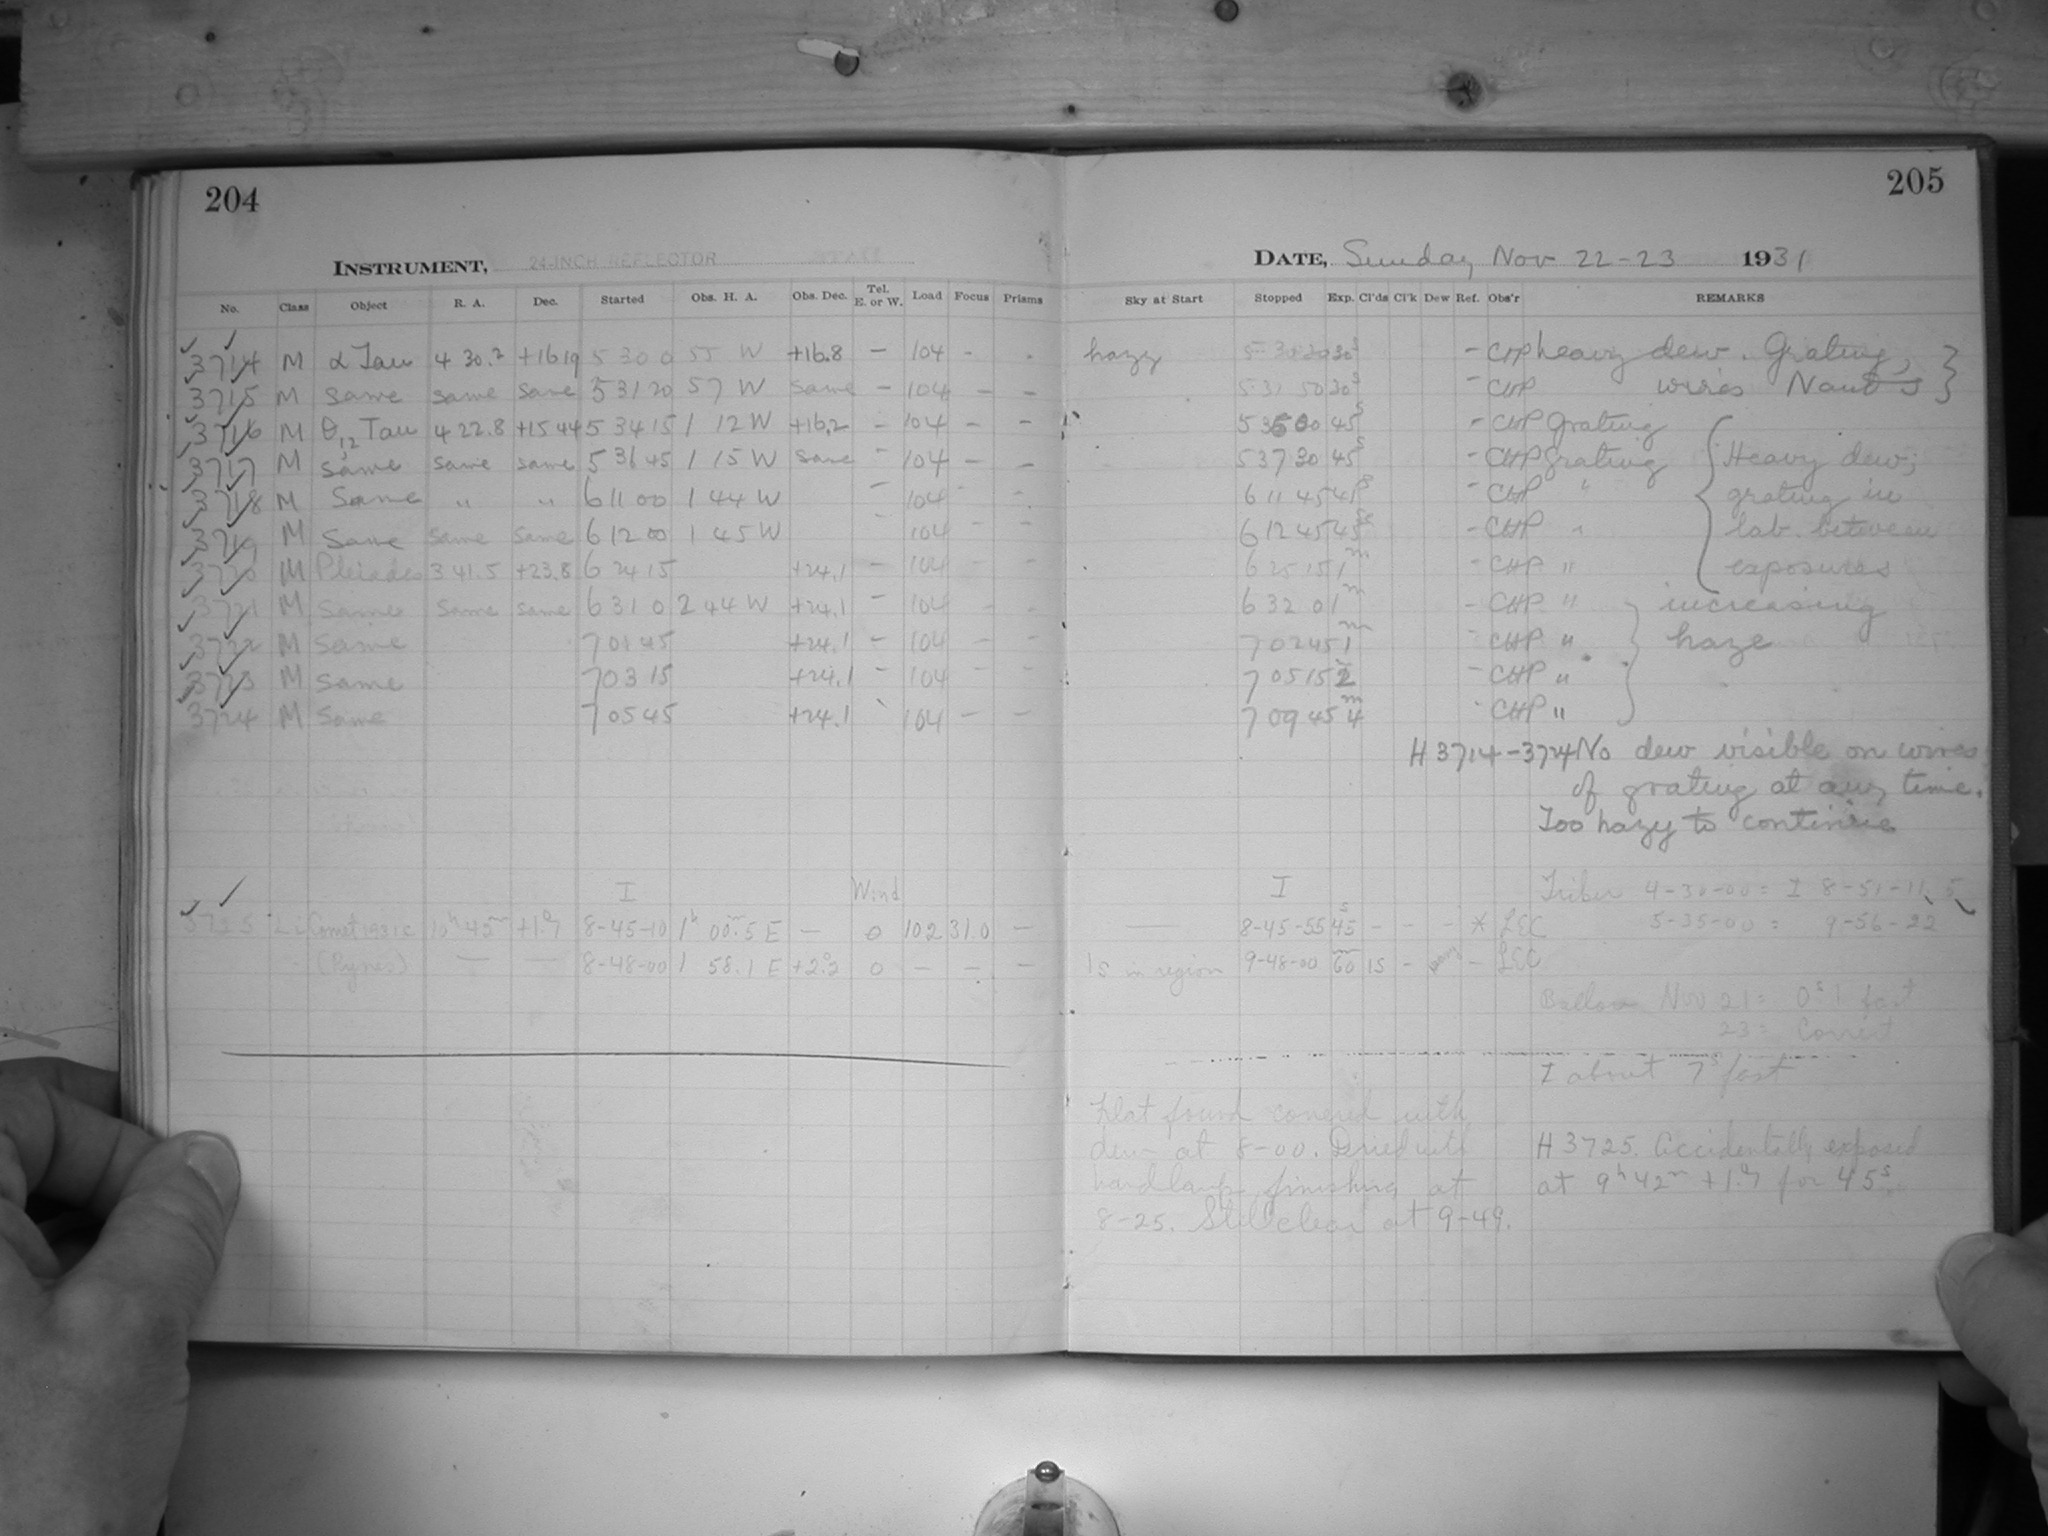 204
INSTRUMENT, 24-INCH REFLECTOR
No. Class Object R. A. Dec. Started Obs. H. A. Obs. Dec. Tel. E. or W. Load Focus Prisms
3714 M α Tau 4 30.2 +16 19 5 30 0 55 W +16.8 – 104 - -
3715 M same same same 5 31 20 57 W same – 104 – –
3716 M θ12 Tau 4 22.8 +15 44 5 34 15 1 12 W +16.2 – 104 – –
3717 M same same same 5 36 45 1 15 W same – 104 – –
3718 M Same " " 6 11 00 1 44 W – 104 - –
3719 M Same same same 6 12 00 1 45 W - 104 – –
3720 M Pleiades 3 41.5 +23.8 6 24 15 +24.1 – 104 – –
3721 M Same Same same 6 31 0 2 44 W +24.1 – 104 - -
3722 M Same 7 01 45 +24.1 – 104 – –
3723 M Same 7 03 15 +24.1 – 104 – –
3724 M Same 7 05 45 +24.1 ` 104 – –
I Wind
3725 Li Comet 1931c 10h 42m +1.°7 8-45-10 1h 00m.5 E — 0 102 31.0 –
- (Ryves) — — 8-48-00 1 58.1 E +2.°2 0 – – –
205
DATE, Sunday Nov 22-23 1931
Sky at Start Stopped Exp. Cl'ds Cl'k Dew Ref. Obs'r REMARKS
hazy 5 30 30 30s – CHP heavy dew. Grating,
5 31 50 30s – CHP wires
5 35 00 45s – CHP Grating
5 37 30 45s – CHP Grating Heavy dew;
6 11 45 45s – CHP " grating in
6 12 45 45s – CHP " lab. between
6 25 15 1m – CHP " exposures
6 32 0 1m – CHP " increasing
7 02 45 1m – CHP " haze
7 05 15 2 – CHP "
7 09 45 4m - CHP "
H 3714-3724 No dew visible on wires
of grating at any time.
Too hazy to continue
I 4-30-00 = I 8-51-11.5
— 8-45-55 45s – – – * LEC 5-35-00 = 9-56-22
1s in region 9-48-00 60m 1s – – LEC
Nov 21 = 0s.1 fast
23 = Correct
I about 7s fast
Flat found covered with
dew at 8-00. Dried with
hand lamp, finishing at
8-25. Still clear at 9-49.
H 3725. Accidentally exposed
at 9h 42m +1.°7 for 45s.